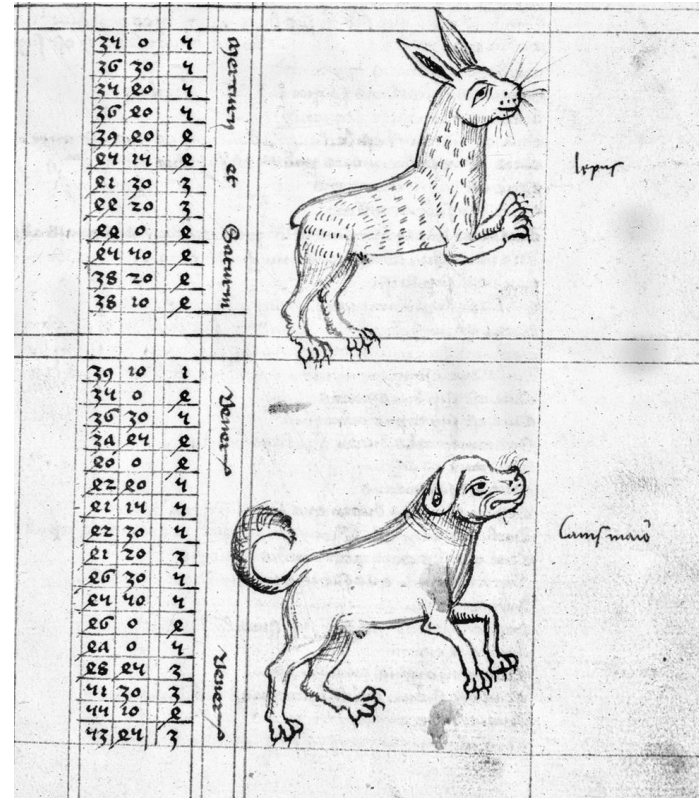 35 0 5
36 30 5
35 40 5
36 40 5
39 40 4
45 15 4
41 30 3
44 20 3
47 0 4
45 50 4
38 20 4
38 10 4
et Saturni
lepus
39 10 1
35 0 4
36 30 5
37 45 4
40 0 4
42 40 5
41 15 5
42 30 5
41 20 3
46 30 5
45 50 5
46 0 4
47 0 5
48 45 3
51 30 3
55 10 4
53 45 3
Canis maio